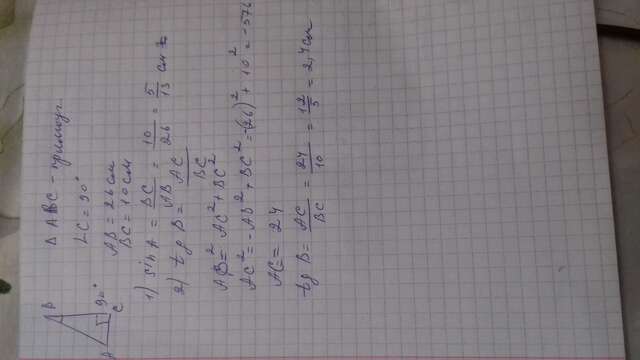 B
90°
A
C
Δ ABC - прямоуг.
∠C = 90°
AB = 26 см
BC = 10 см
1) sin A = BC/AB = 10/26 = 5/13 см
2) tg B = AC/BC
AB² = AC² + BC²
AC² = -AB² + BC² = -(26)² + 10² = -576
AC = 24
tg B = AC/BC = 24/10 = 12/5 = 2,4 см